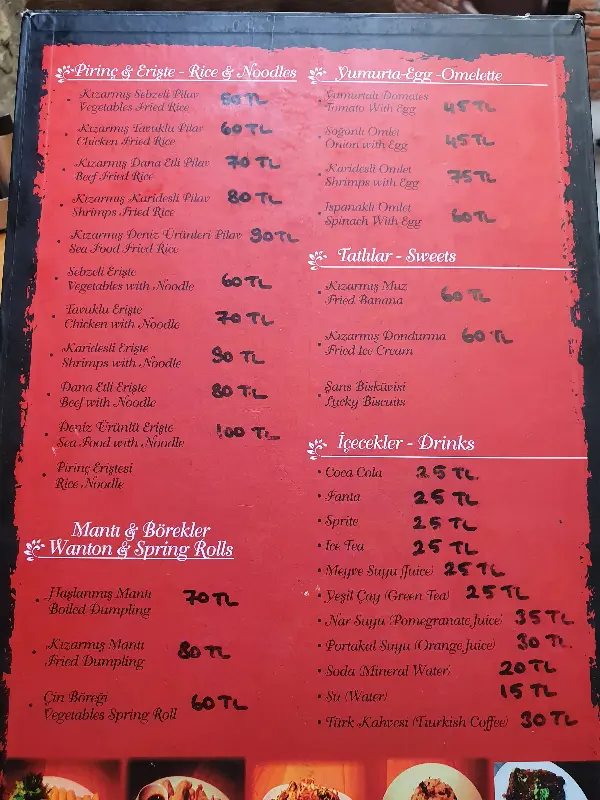 Pirinç & Erişte - Rice & Noodles
Kızarmış Sebzeli Pilav
Vegetables Fried Rice 50 TL
Kızarmış Tavuklu Pilav
Chicken Fried Rice 60 TL
Kızarmış Dana Etli Pilav
Beef Fried Rice 70 TL
Kızarmış Karidesli Pilav
Shrimps Fried Rice 80 TL
Kızarmış Deniz Ürünleri Pilav
Sea Food Fried Rice 90 TL
Sebzeli Erişte
Vegetables with Noodle 60 TL
Tavuklu Erişte
Chicken with Noodle 70 TL
Karidesli Erişte
Shrimps with Noodle 90 TL
Dana Etli Erişte
Beef with Noodle 80 TL
Deniz Ürünlü Erişte
Sea Food with Noodle 100 TL
Pirinç Eriştesi
Rice Noodle
Mantı & Börekler
Wanton & Spring Rolls
Haşlanmış Mantı
Boiled Dumpling 70 TL
Kızarmış Mantı
Fried Dumpling 80 TL
Çin Böreği
Vegetables Spring Roll 60 TL
Yumurta-Egg -Omelette
Yumurtalı Domates
Tomato With Egg 45 TL
Soğanlı Omlet
Onion with Egg 45 TL
Karidesli Omlet
Shrimps with Egg 75 TL
Ispanaklı Omlet
Spinach With Egg 60 TL
Tatlılar - Sweets
Kızarmış Muz
Fried Banana 60 TL
Kızarmış Dondurma
Fried Ice Cream 60 TL
Şans Bisküvisi
Lucky Biscuits
İçecekler - Drinks
Coca Cola 25 TL
Fanta 25 TL
Sprite 25 TL
Ice Tea 25 TL
Meyve Suyu (Juice) 25 TL
Yeşil Çay (Green Tea) 25 TL
Nar Suyu (Pomegranate Juice) 35 TL
Portakal Suyu (Orange Juice) 30 TL
Soda (Mineral Water) 20 TL
Su (Water) 15 TL
Türk Kahvesi (Turkish Coffee) 30 TL